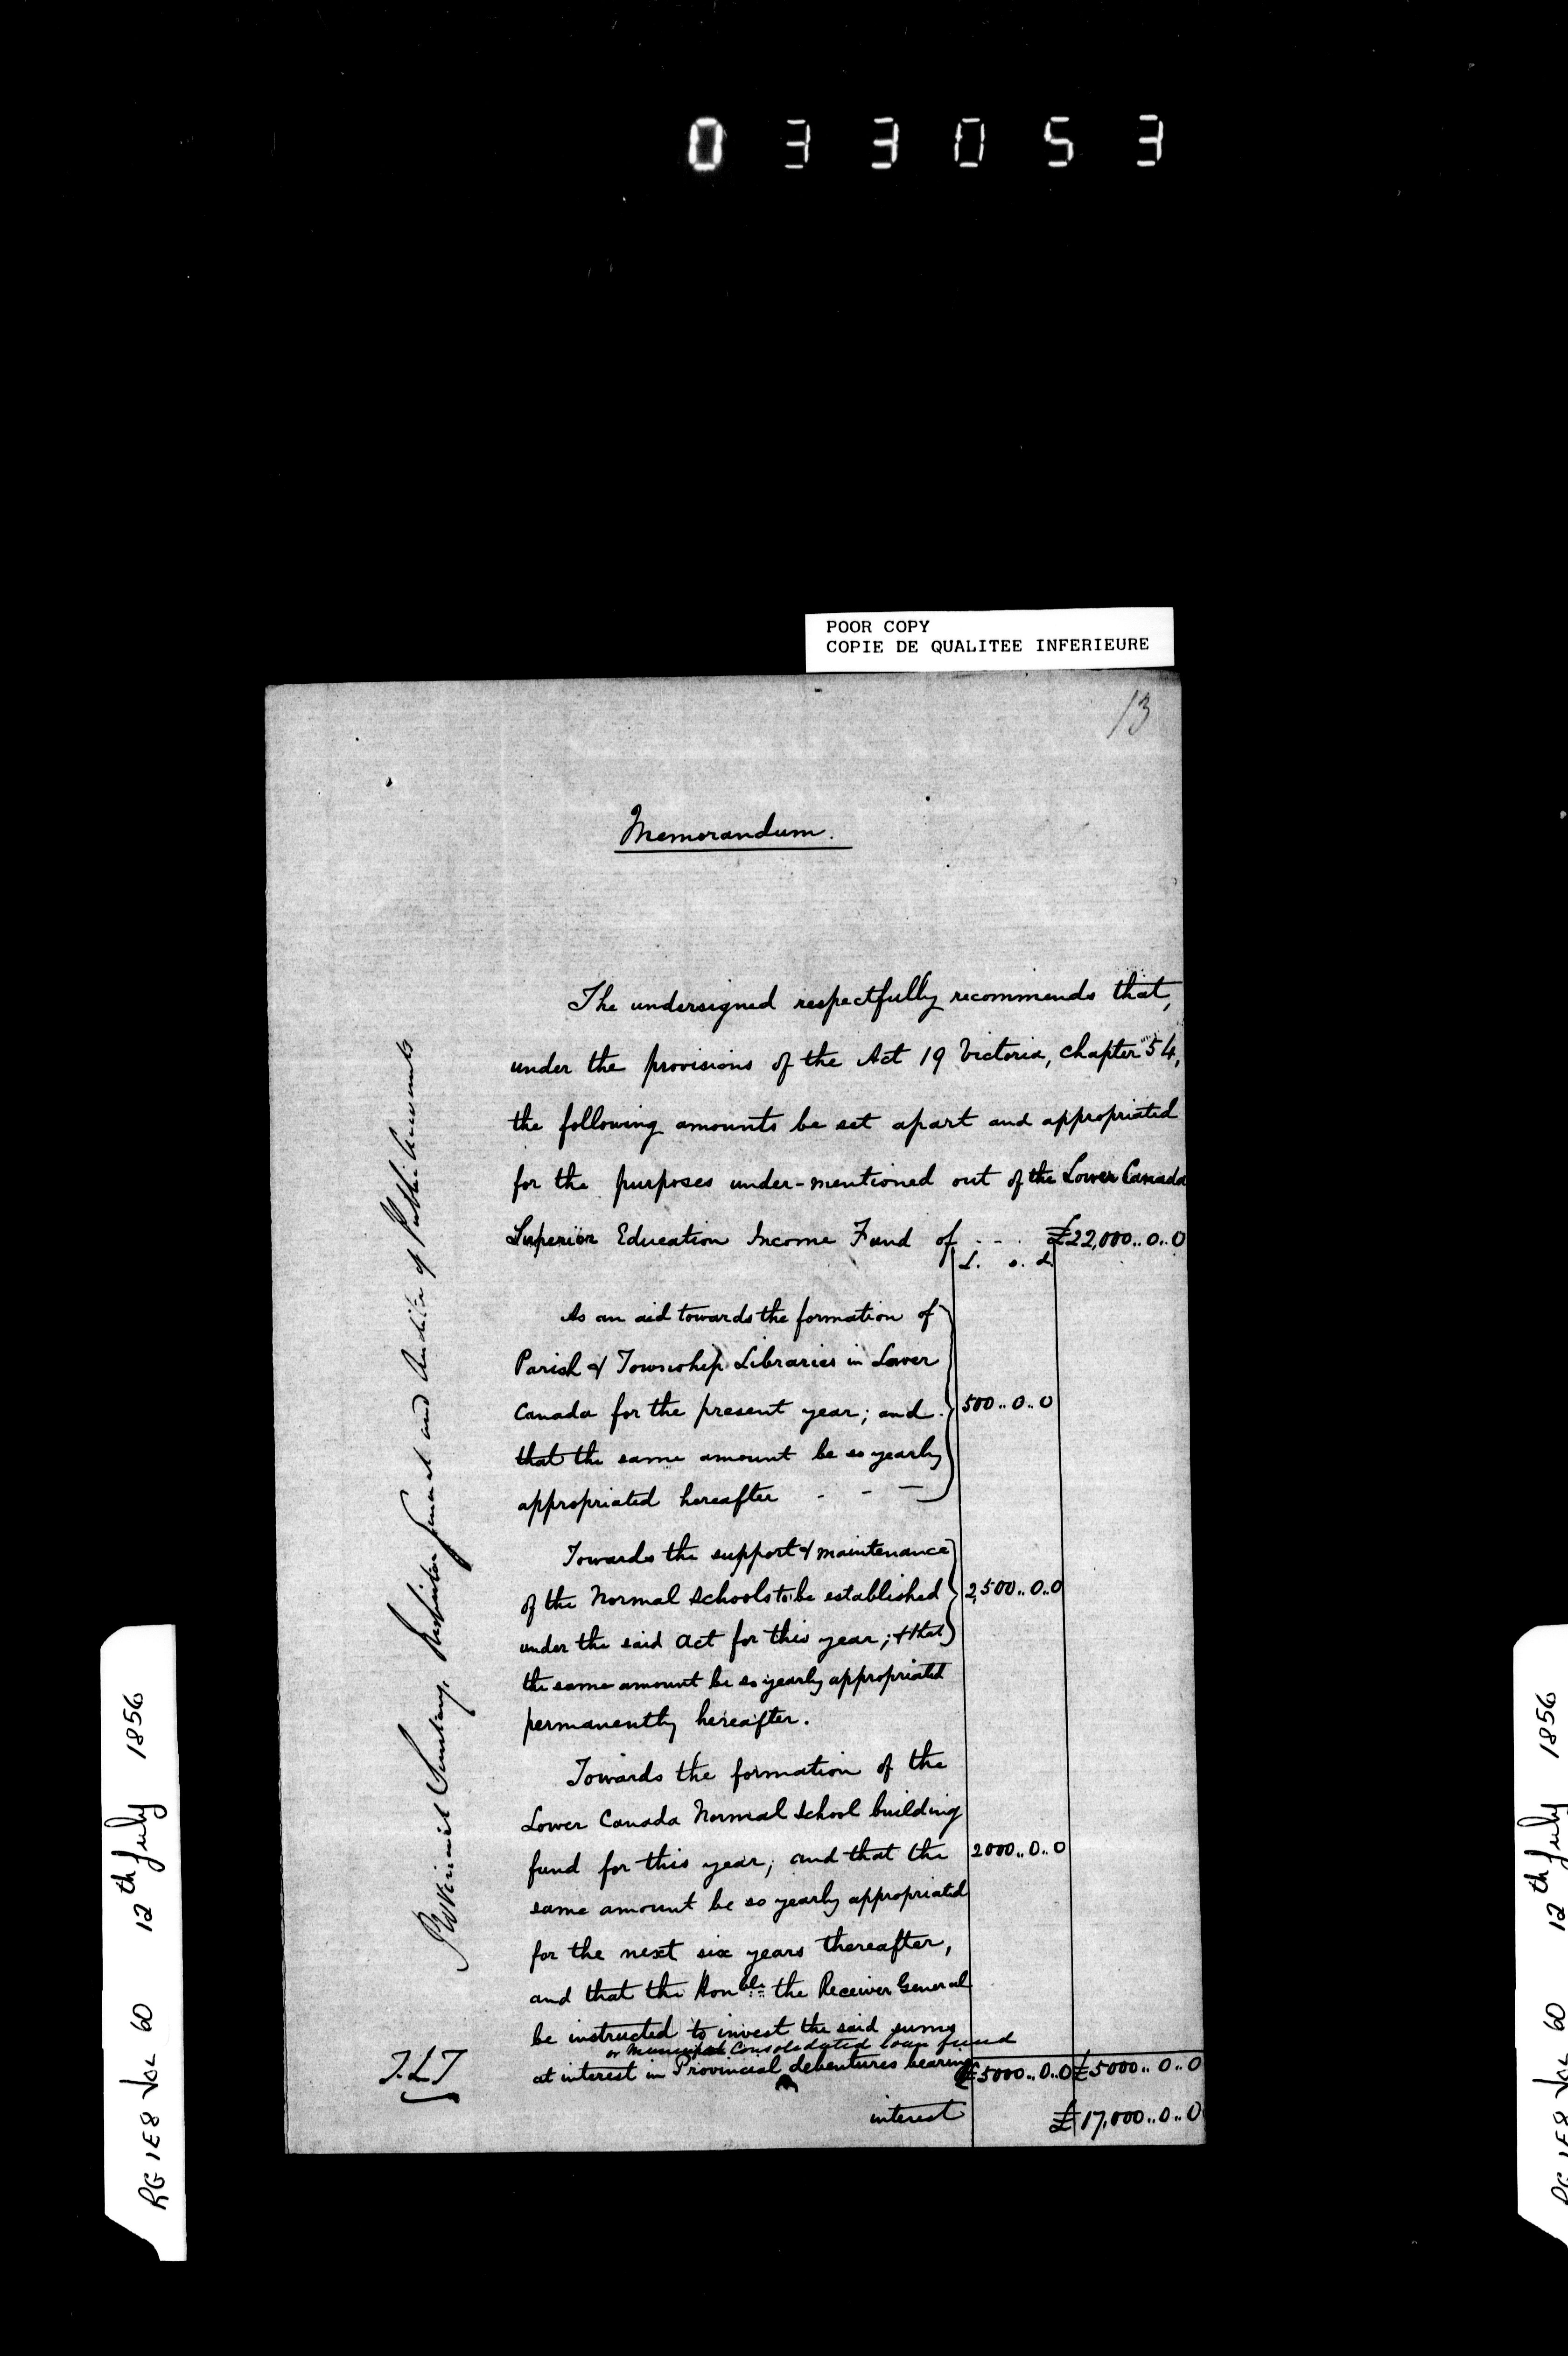 033053
POOR COPY
COPIE DE QUALITEE INFERIEURE
13
Memorandum.
The undersigned respectfully recommends that,
under the provisions of the Act 19 Victoria, chapter 54,
the following amounts be set apart and appropriated
for the purposes under-mentioned out of the Lower Canada
Superior Education Income Fund of - - - £22,000..0..0
£. s. d.
As an aid towards the formation of
Parish & Township Libraries in Lower
Canada for the present year; and 500..0..0
that the same amount be so yearly
appropriated hereafter - - -
Towards the support & maintenance
of the Normal Schools to be established 2,500..0..0
under the said Act for this year; & that
the same amount be so yearly appropriated
permanently hereafter.
Towards the formation of the
Lower Canada Normal School building
fund for this year; and that the 2000..0..0
same amount be so yearly appropriated
for the next six years thereafter,
and that the Honble. the Receiver General
be instructed to invest the said sums
or Municipal Consolidated loan fund
at interest in Provincial debentures bearing £5000..0..0 £5000..0..0
interest £17,000..0..0
J.L.T
Provincial Secretary, Receiver General and Auditor of Public Accounts
RG 1E8 Vol 60 12th July 1856
RG 1E8 Vol 60 12th July 1856